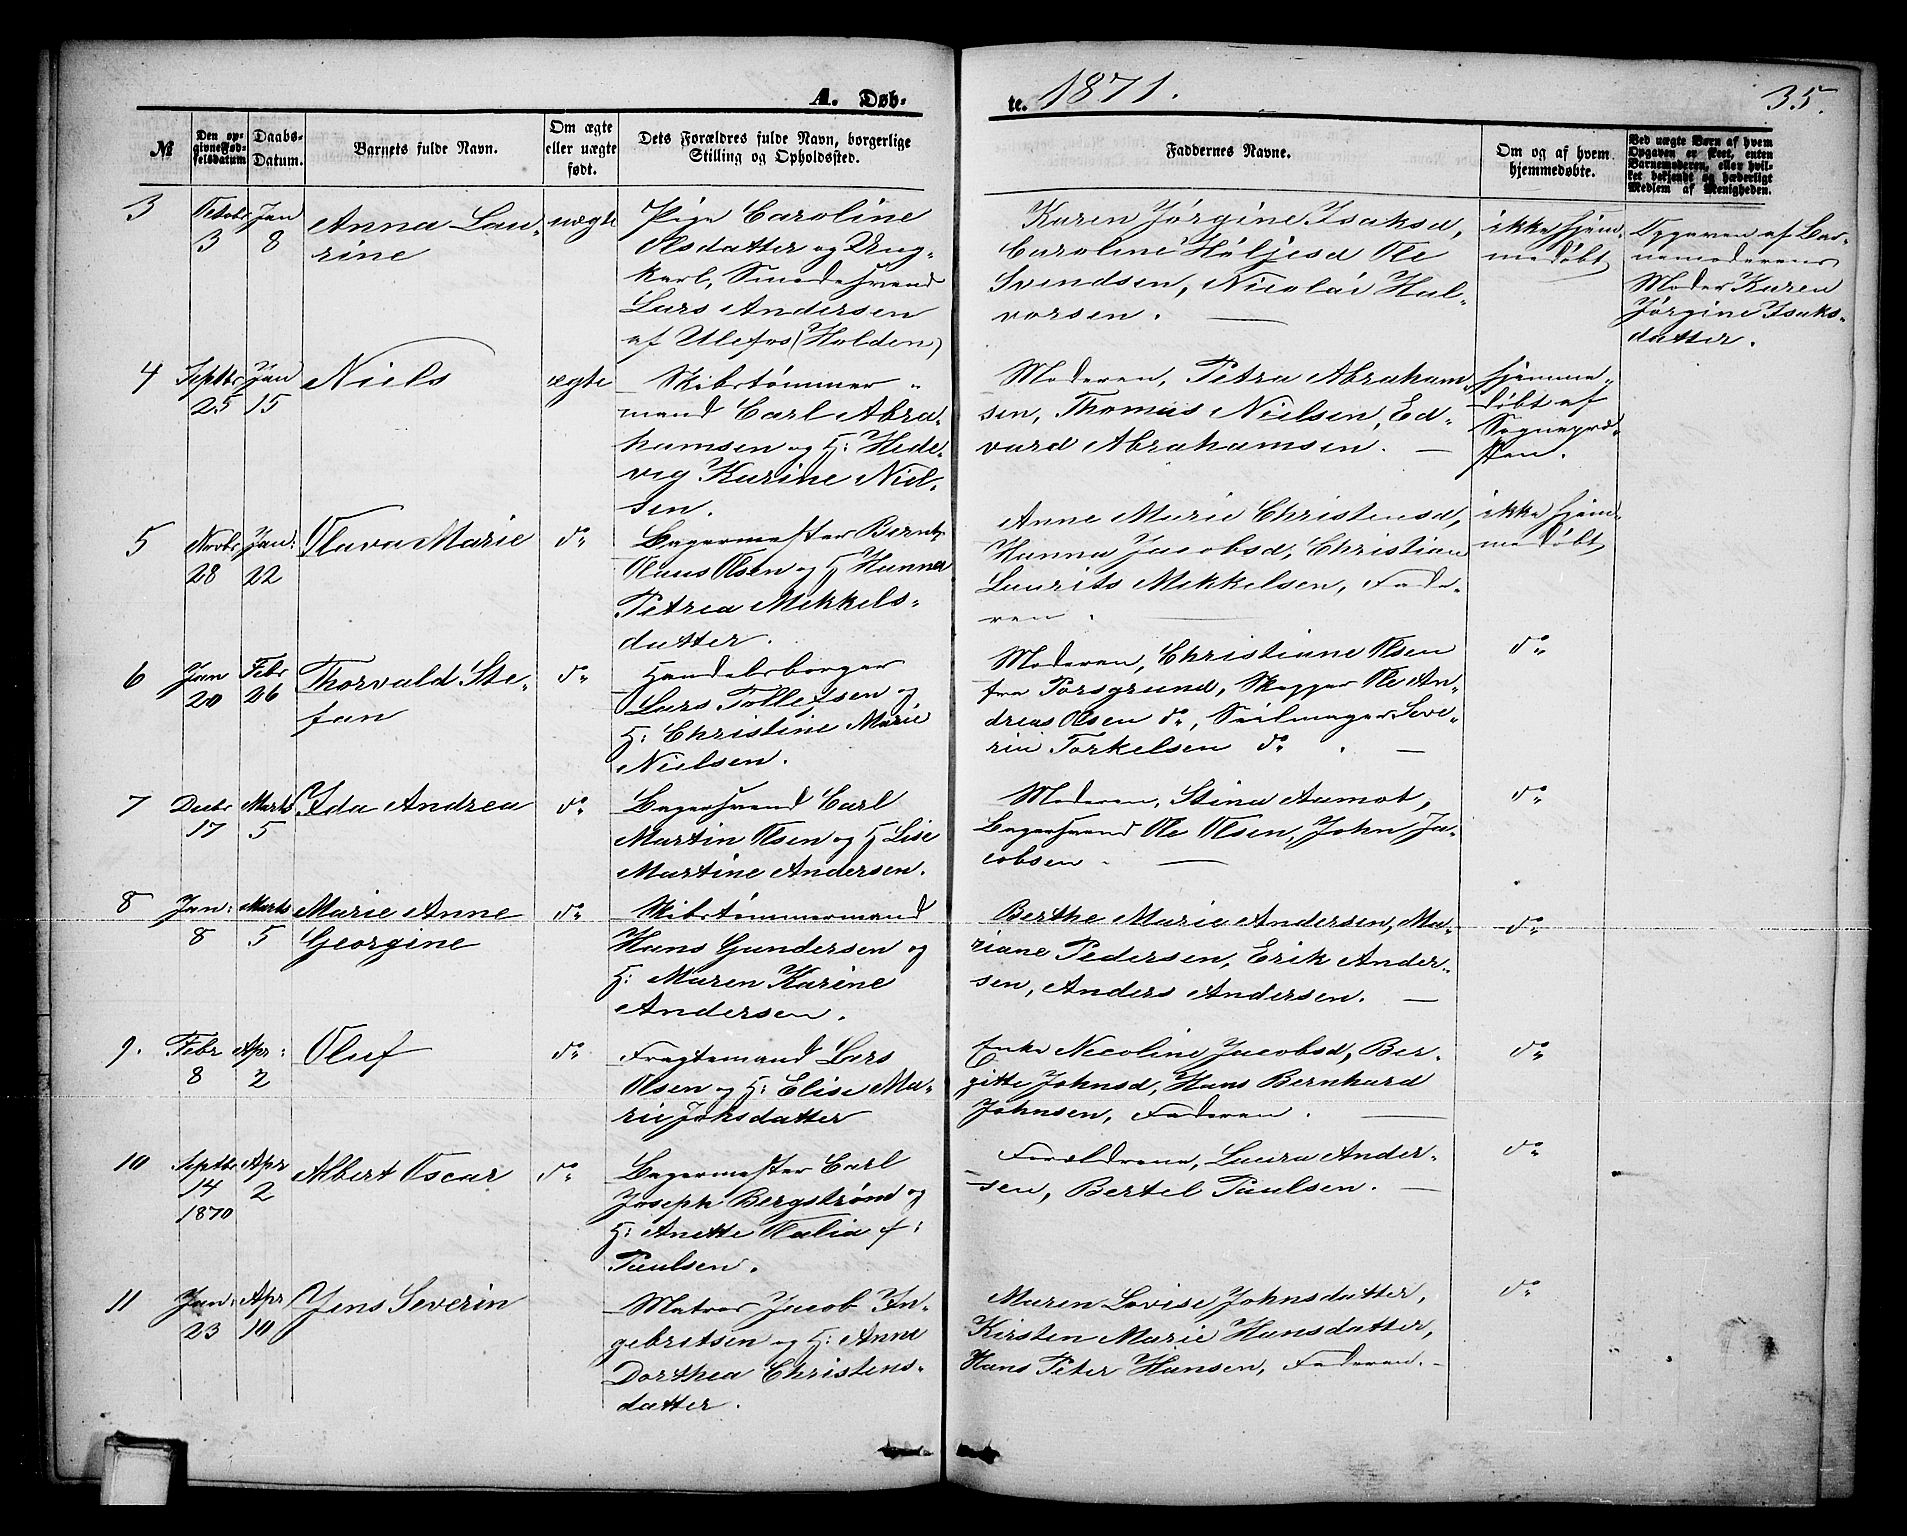 A. Døb-
te. 1871.
35.
№
Den op-
givne Fød-
selsdatum
Daabs-
Datum.
Barnets fulde Navn.
Om ægte
eller uægte
født.
Dets Forældres fulde Navn, borgerlige
Stilling og Opholdssted.
Faddernes Navne.
Om og af hvem
hjemmedøbte.
Ved uægte Børn af hvem
Opgaven er skeet, enten
Barnemoderen, eller hvil-
ket bekjendt og hæderligt
Medlem af Menigheden.
3
Octobr
3
Jan
8
Anna Lau-
rine
uægte
Pige Caroline
Olsdatter og Ung-
karl, Smedesvend
Lars Andersen
af Ulefos (Holden)
Karen Jørgine Isaksd,
Caroline Høljesd Ole
Svendsen, Nicolai Hal-
vorsen.
ikke hjem-
medøbt
Opgaven af Bar-
nemoderens
Moder Karen
Jørgine Isaks-
datter.
4
Septbr
25
Jan
15
Niels
ægte
Skibstømmer-
mand Carl Abra-
hamsen og H: Hede-
vig Karine Niel-
sen.
Moderen, Petra Abraham-
sen, Thomas Nielsen, Ed-
vard Abrahamsen.
hjemme-
døbt af
Sognepræ-
sten.
5
Novbr
28
Jan:
22
Olava Marie
do
Bagermester Bernt
Olaus Olsen og H Hanna
Petrea Mekkels-
datter.
Anne Marie Christensd,
Hanna Jacobsd, Christian
Laurits Mekkelsen, Fade-
ren.
ikke hjem-
medøbt
6
Jan
20
Febr
26
Thorvald Ste-
fan
do
Handelsborger
Lars Tollefsen og
H: Christine Marie
Nielsen.
Moderen, Christiane Olsen
fra Porsgrund, Skipper Ole An-
dreas Olsen do, Seilmager Seve-
rin Torkelsen do
do
7
Decbr
17
Marts
5
Ida Andrea
do
Bagersvend Carl
Martin Olsen og H Lise
Martine Andersen.
Moderen, Stina Aamot,
Bagersvend Ole Olsen, John Ja-
cobsen.
do
8
Jan:
8
Marts
5
Marie Anne
Georgine
do
Skibstømmermand
Hans Gundersen og
H: Maren Karine
Andersen.
Berthe Marie Andersen, Ma-
riane Pedersen, Erik Ander-
sen, Anders Andersen.
do
9.
Febr
8
Apr:
2
Oluf
do
Fragtemand Lars
Olsen og H: Elise Ma-
rie Johsdatter
Enke Necoline Jacobsd, Ber-
gitte Johnsd, Hans Bernhard
Johnsen, Faderen.
do
10
Septbr
14
1870
Apr
2
Albert Oscar
do
Bagermester Carl
Joseph Bergstrøm og
H: Anette Olalia f:
Paulsen.
Forældrene, Laura Ander-
sen, Bertel Paulsen.
do
11
Jan:
23
Apr
10
Jens Severin
Matros Jacob In-
gebretsen og H: Anne
Dorthea Christens-
datter.
Maren Lovise Johnsdatter,
Kirsten Marie Hansdatter,
Hans Peter Hansen, Faderen.
do